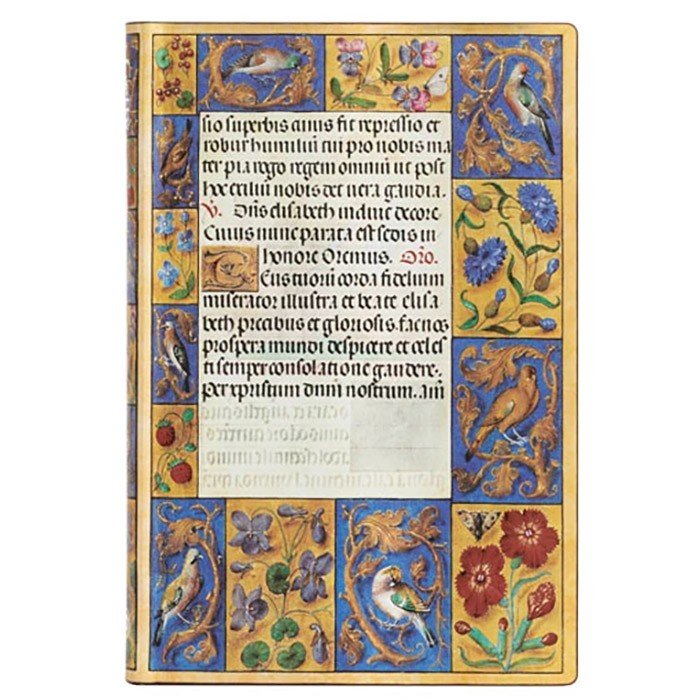 sio superbis cuius fit repressio et
robur humiliū cui pro nobis ma
ter pia rogo regem omniū ut post
hoc exiliū nobis det uera gaudia.
V. Dn̄s elisabeth induit decore
Cuius nunc parata est sedis in
honore Oremus. Oro.
Deus tuorū corda fidelium
miserator illustra et beate elisa
beth precabus et gloriosis. fac nos
prospera mundi despicere et celes
ti semper consolatione gaudere.
Per xpristum dnm̄ nostrum. am̄